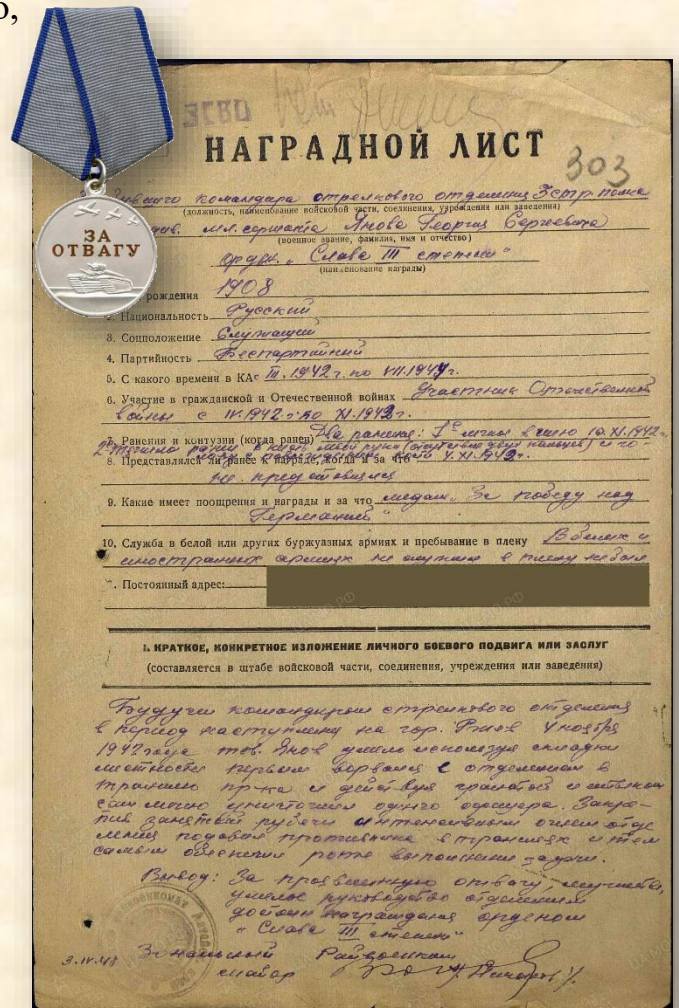 о,
ЗА
ОТВАГУ
ЗСВО
НАГРАДНОЙ ЛИСТ
303
командира стрелкового отделения 3 стр. полка
(должность, наименование войсковой части, соединения, учреждения или заведения)
див. мл. сержанта Янова Георгия Сергеевича
(военное звание, фамилия, имя и отчество)
орден „Слава III степени“
(наименование награды)
рождения 1908
2. Национальность Русский
3. Соцположение Служащий
4. Партийность Беспартийный
5. С какого времени в КА с III.1942 г. по VII.1944 г.
6. Участие в гражданской и Отечественной войнах Участник Отечественной
войны с IV.1942 г. по XI.1942 г.
7. Ранения и контузии (когда ранен) Два ранения:
8. Представлялся ли ранее к награде, когда и за что
не представлялся
9. Какие имеет поощрения и награды и за что медаль „За победу над
Германией“
10. Служба в белой или других буржуазных армиях и пребывание в плену В белых и
иностранных армиях не служил в плену не был
Постоянный адрес:
I. КРАТКОЕ, КОНКРЕТНОЕ ИЗЛОЖЕНИЕ ЛИЧНОГО БОЕВОГО ПОДВИГА ИЛИ ЗАСЛУГ
(составляется в штабе войсковой части, соединения, учреждения или заведения)
Будучи командиром стрелкового отделения
в период наступления на гор. Ржев 4 ноября
1942 года тов. Янов умело используя складки
местности первым ворвался с отделением в
траншею пр-ка и действуя гранатой и штыком
сам лично уничтожил одного офицера. Закре-
пив занятый рубеж интенсивным огнем отде
ления подавил противника в траншеях и тем
самым обеспечил роте выполнение задачи.
Вывод: За проявленную отвагу, мужество,
умелое руководство отделением
достоин награждения орденом
„Слава III степени“
3.IV.48 Зональный Райвоенком
майор